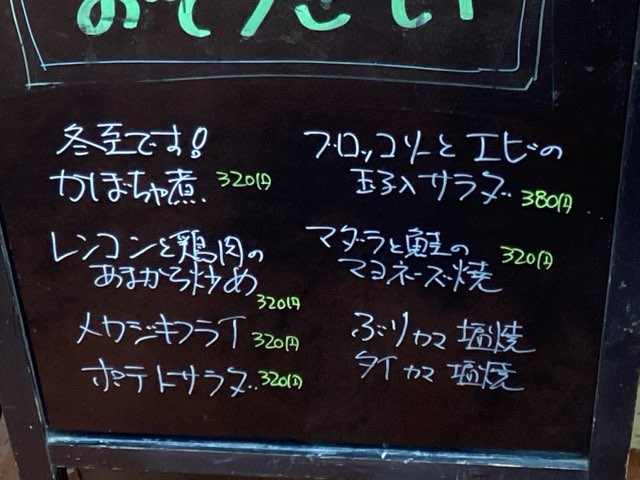 おそうざい
冬至です!
かぼちゃ煮 320円
レンコンと鶏肉の
あまから炒め
320円
メカジキフライ 320円
ポテトサラダ 320円
ブロッコリーとエビの
玉子入サラダ 380円
マダラと鮭の
マヨネーズ焼 320円
ぶりカマ 塩焼
タイカマ 塩焼